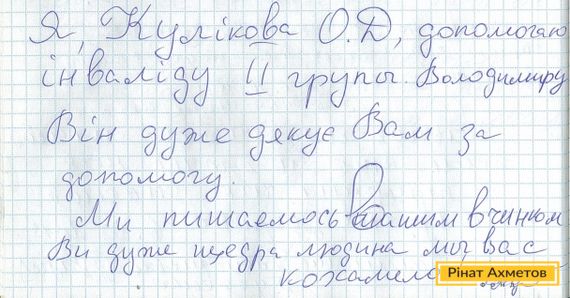 Я, Кулікова О.Д, допомогаю
інваліду II групы. Володимиру
Він дуже дякує Вам за
допомогу.
Ми пишаемось Вашим вчинком
Ви дуже щедра людина мы вас
Рінат Ахметов